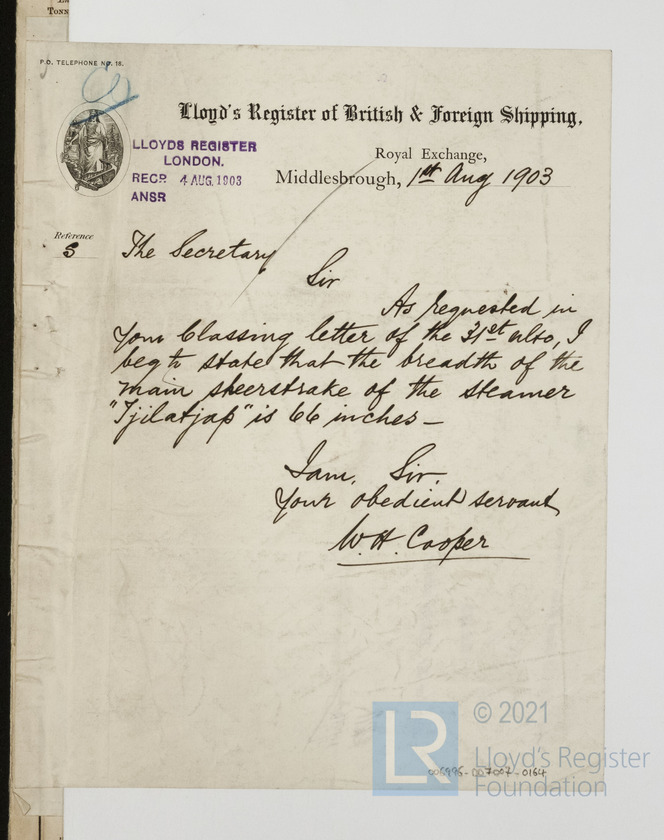 TONN
P.O. TELEPHONE NO. 18.
Lloyd's Register of British & Foreign Shipping,
LLOYDS REGISTER
LONDON.
RECD 4 AUG. 1903
ANSR
Royal Exchange,
Middlesbrough, 1st Aug 1903
Reference
S
The Secretary
Sir
As requested in
your Classing letter of the 31st ulto, I
beg to state that the breadth of the
main sheerstrake of the steamer
"Tjilatjap" is 66 inches –
I am, Sir.
Your obedient servant
W. H. Cooper
LR
© 2021
Lloyd's Register
Foundation
006996-007007-0164